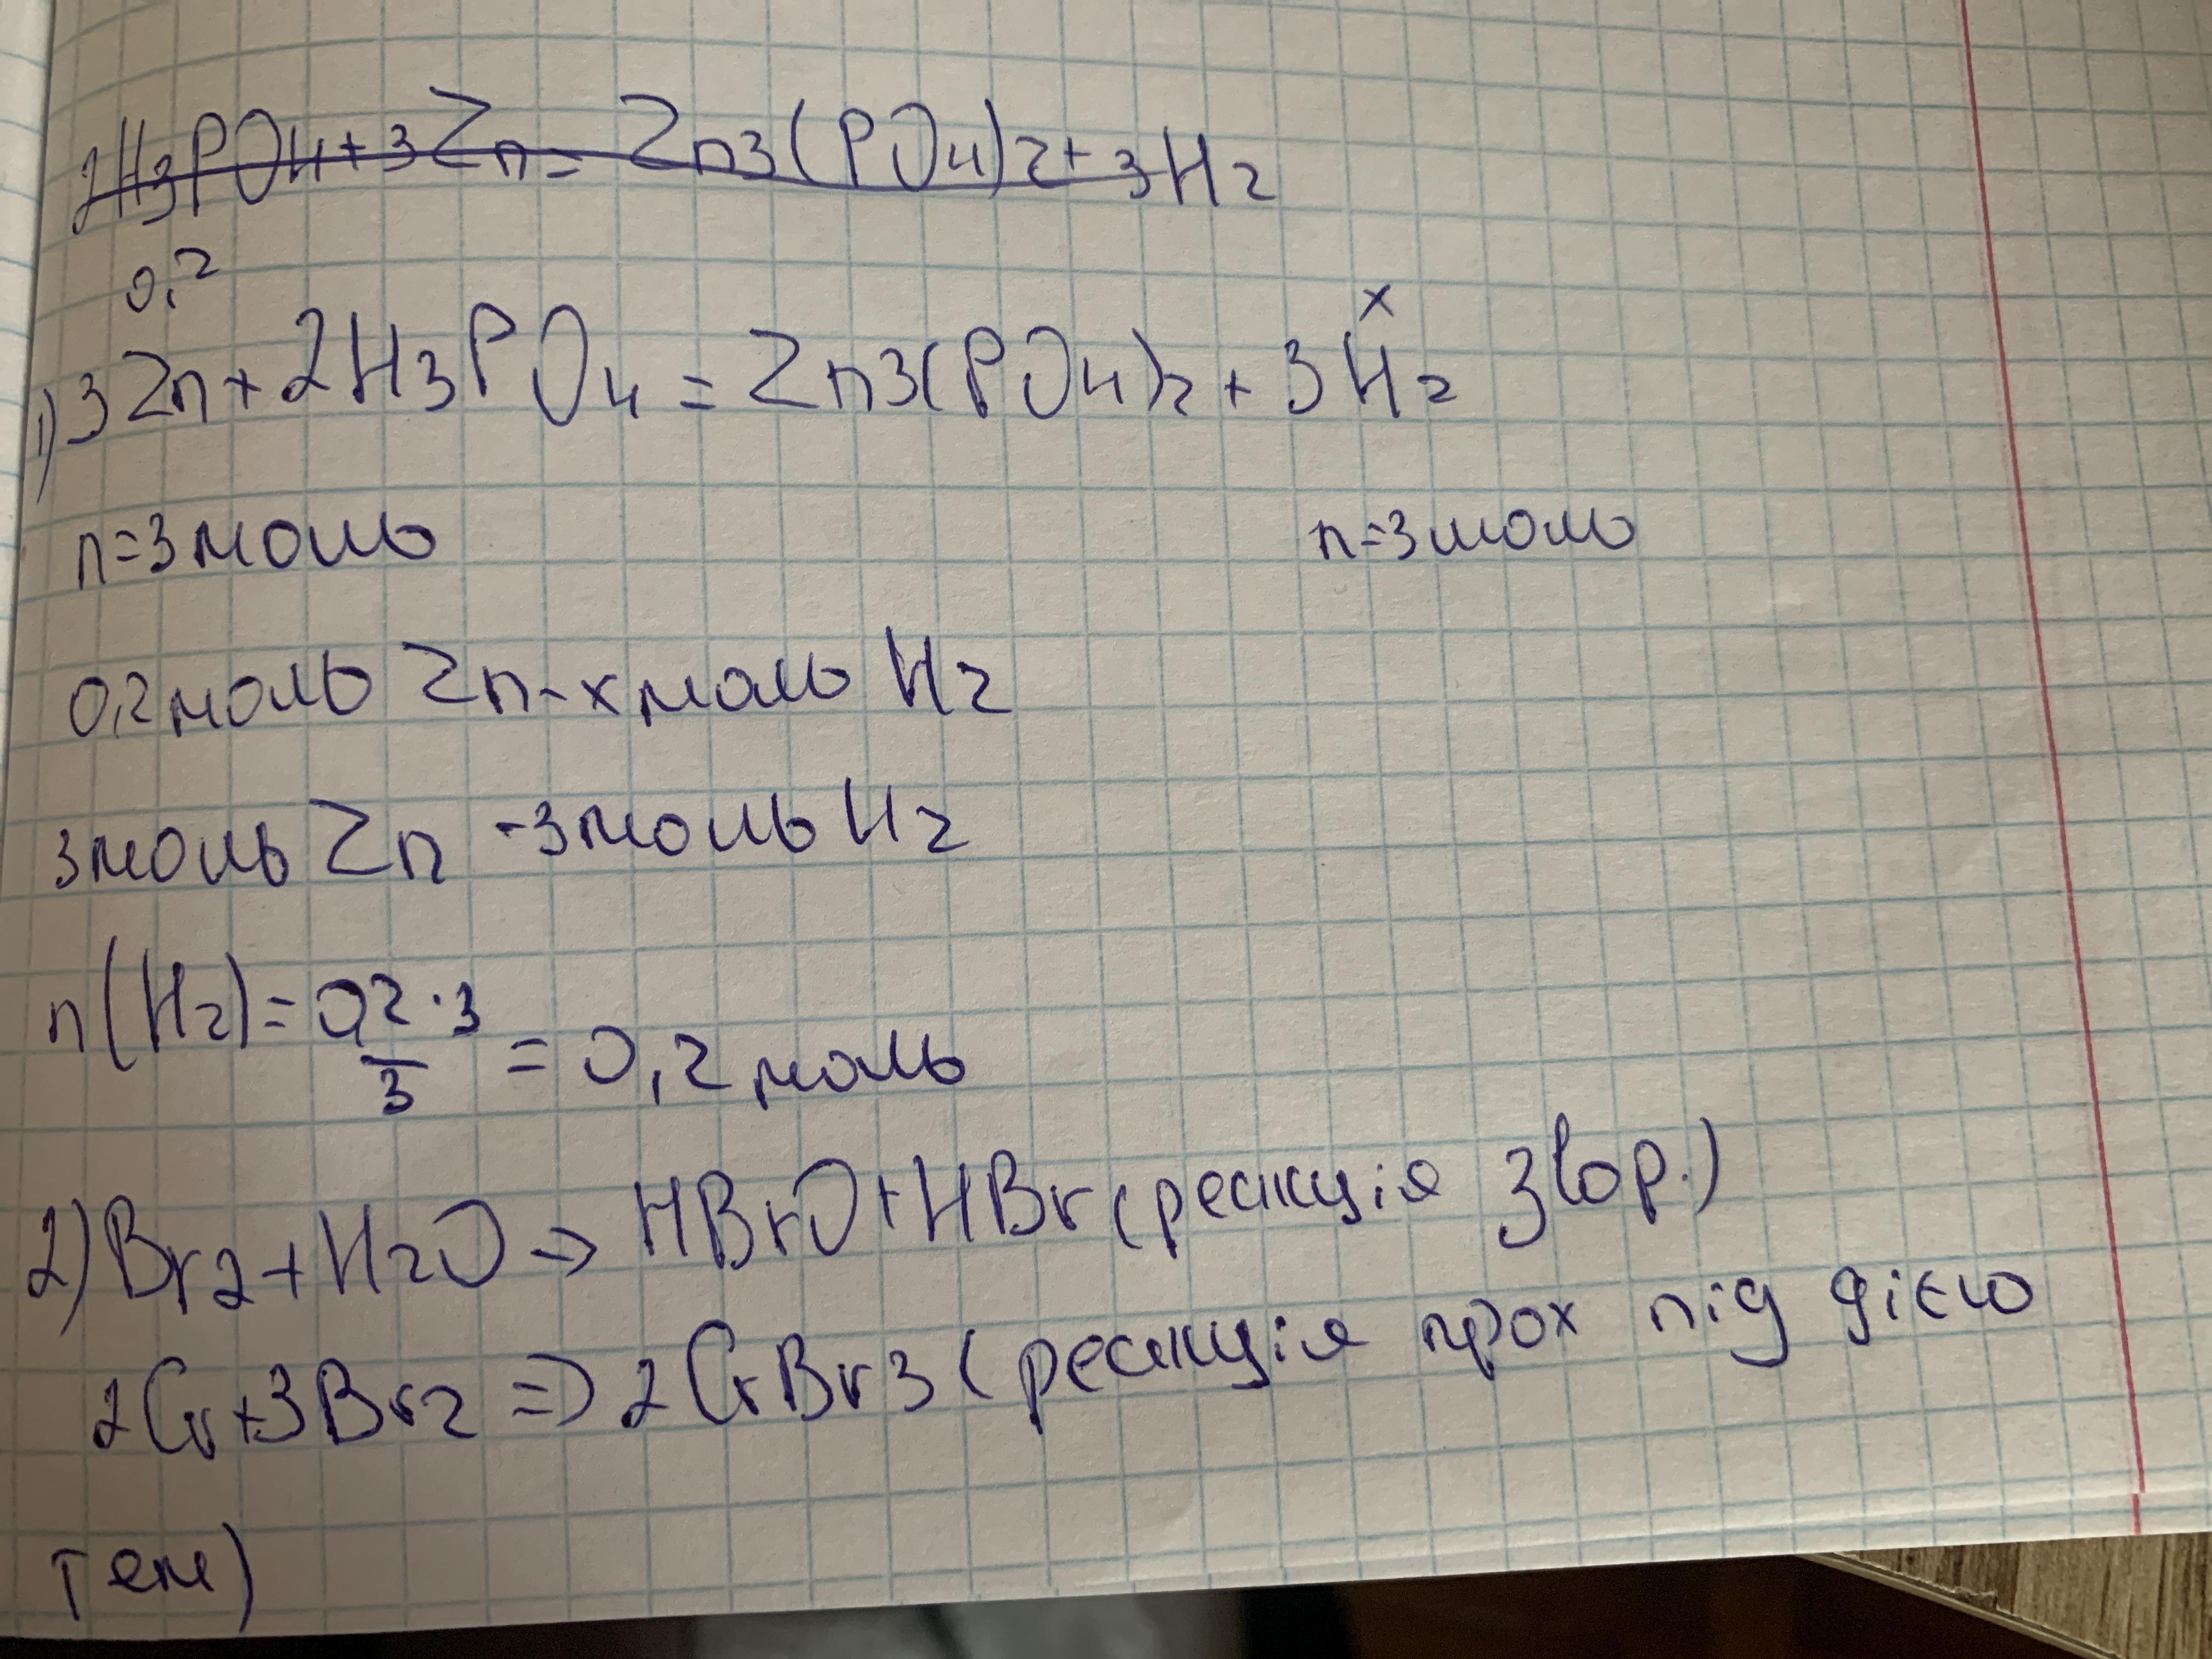 2H3PO4+3Zn=Zn3(PO4)2+3H2
0,2
x
1)3Zn+2H3PO4=Zn3(PO4)2+3H2
n=3моль n=3моль
0,2моль Zn-xмоль H2
3моль Zn -3моль H2
n(H2)=0,2·3/3=0,2моль
2)Br2+H2O→HBrO+HBr(реакція звор.)
2Cr+3Br2=>2CrBr3(реакція прох під дією
тем)